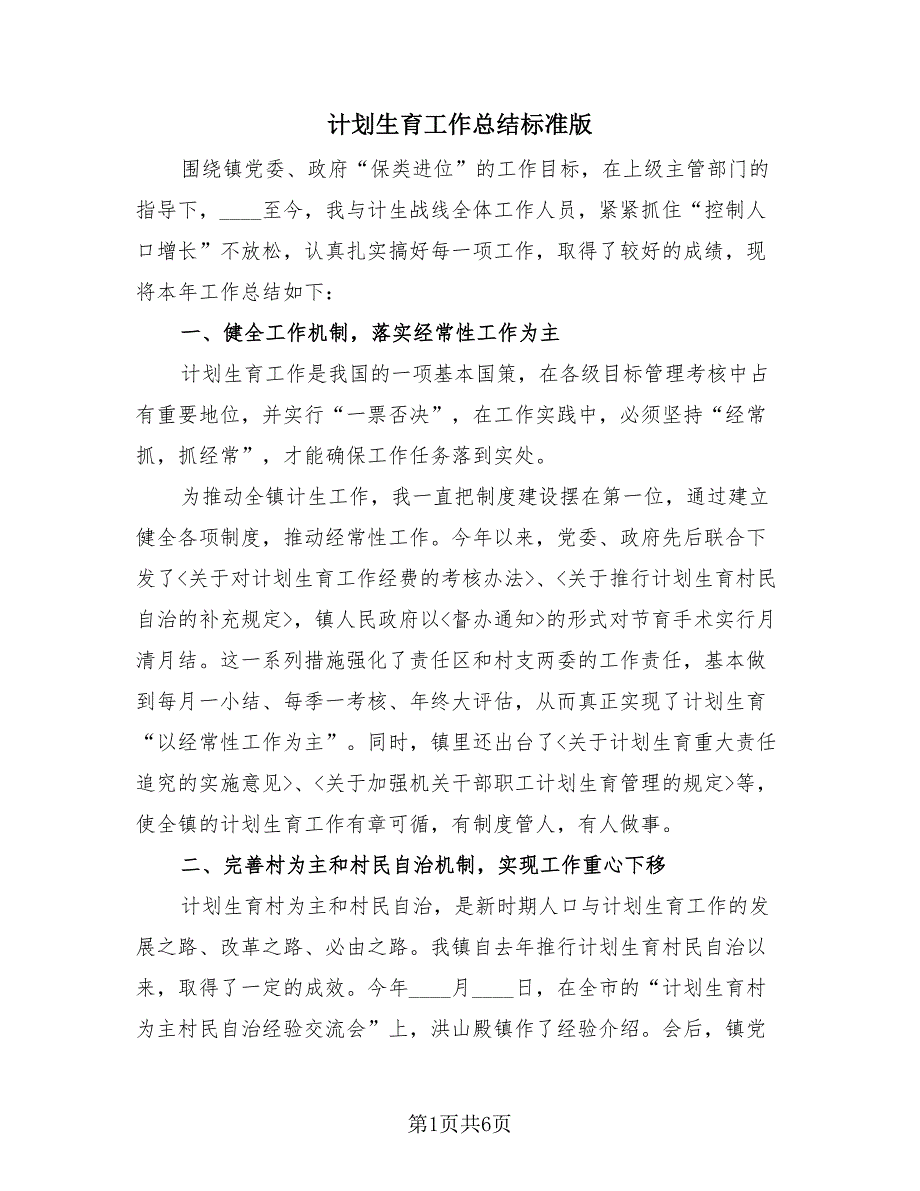 计划生育工作总结标准版
围绕镇党委、政府“保类进位”的工作目标，在上级主管部门的
指导下，____至今，我与计生战线全体工作人员，紧紧抓住“控制人
口增长”不放松，认真扎实搞好每一项工作，取得了较好的成绩，现
将本年工作总结如下：
一、健全工作机制，落实经常性工作为主
计划生育工作是我国的一项基本国策，在各级目标管理考核中占
有重要地位，并实行“一票否决”，在工作实践中，必须坚持“经常
抓，抓经常”，才能确保工作任务落到实处。
为推动全镇计生工作，我一直把制度建设摆在第一位，通过建立
健全各项制度，推动经常性工作。今年以来，党委、政府先后联合下
发了<关于对计划生育工作经费的考核办法>、<关于推行计划生育村民
自治的补充规定>，镇人民政府以<督办通知>的形式对节育手术实行月
清月结。这一系列措施强化了责任区和村支两委的工作责任，基本做
到每月一小结、每季一考核、年终大评估，从而真正实现了计划生育
“以经常性工作为主”。同时，镇里还出台了<关于计划生育重大责任
追究的实施意见>、<关于加强机关干部职工计划生育管理的规定>等，
使全镇的计划生育工作有章可循，有制度管人，有人做事。
二、完善村为主和村民自治机制，实现工作重心下移
计划生育村为主和村民自治，是新时期人口与计划生育工作的发
展之路、改革之路、必由之路。我镇自去年推行计划生育村民自治以
来，取得了一定的成效。今年____月____日，在全市的“计划生育村
为主村民自治经验交流会”上，洪山殿镇作了经验介绍。会后，镇党
第1页共6页